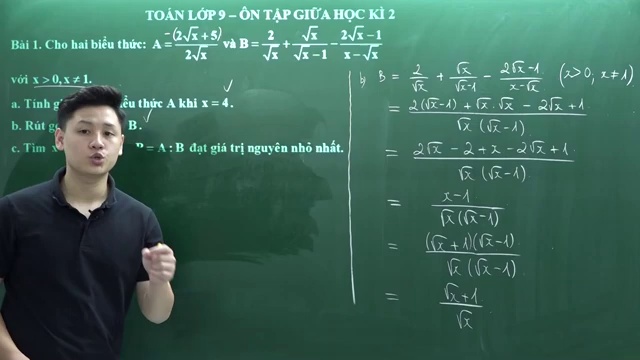 TOÁN LỚP 9 – ÔN TẬP GIỮA HỌC KÌ 2
Bài 1. Cho hai biểu thức: A = -(2√x+5)/(2√x) và B = 2/√x + √x/(√x-1) - (2√x-1)/(x-√x)
với x > 0, x ≠ 1.
a. Tính thức A khi x = 4.
b. Rút B.
c. Tìm = A : B đạt giá trị nguyên nhỏ nhất.
b) B = 2/√x + √x/(√x-1) - (2√x-1)/(x-√x) (x>0; x≠1)
= (2(√x-1) + √x.√x - 2√x+1)/(√x(√x-1))
= (2√x - 2 + x - 2√x + 1)/(√x(√x-1))
= (x-1)/(√x(√x-1))
= ((√x+1)(√x-1))/(√x(√x-1))
= (√x+1)/√x